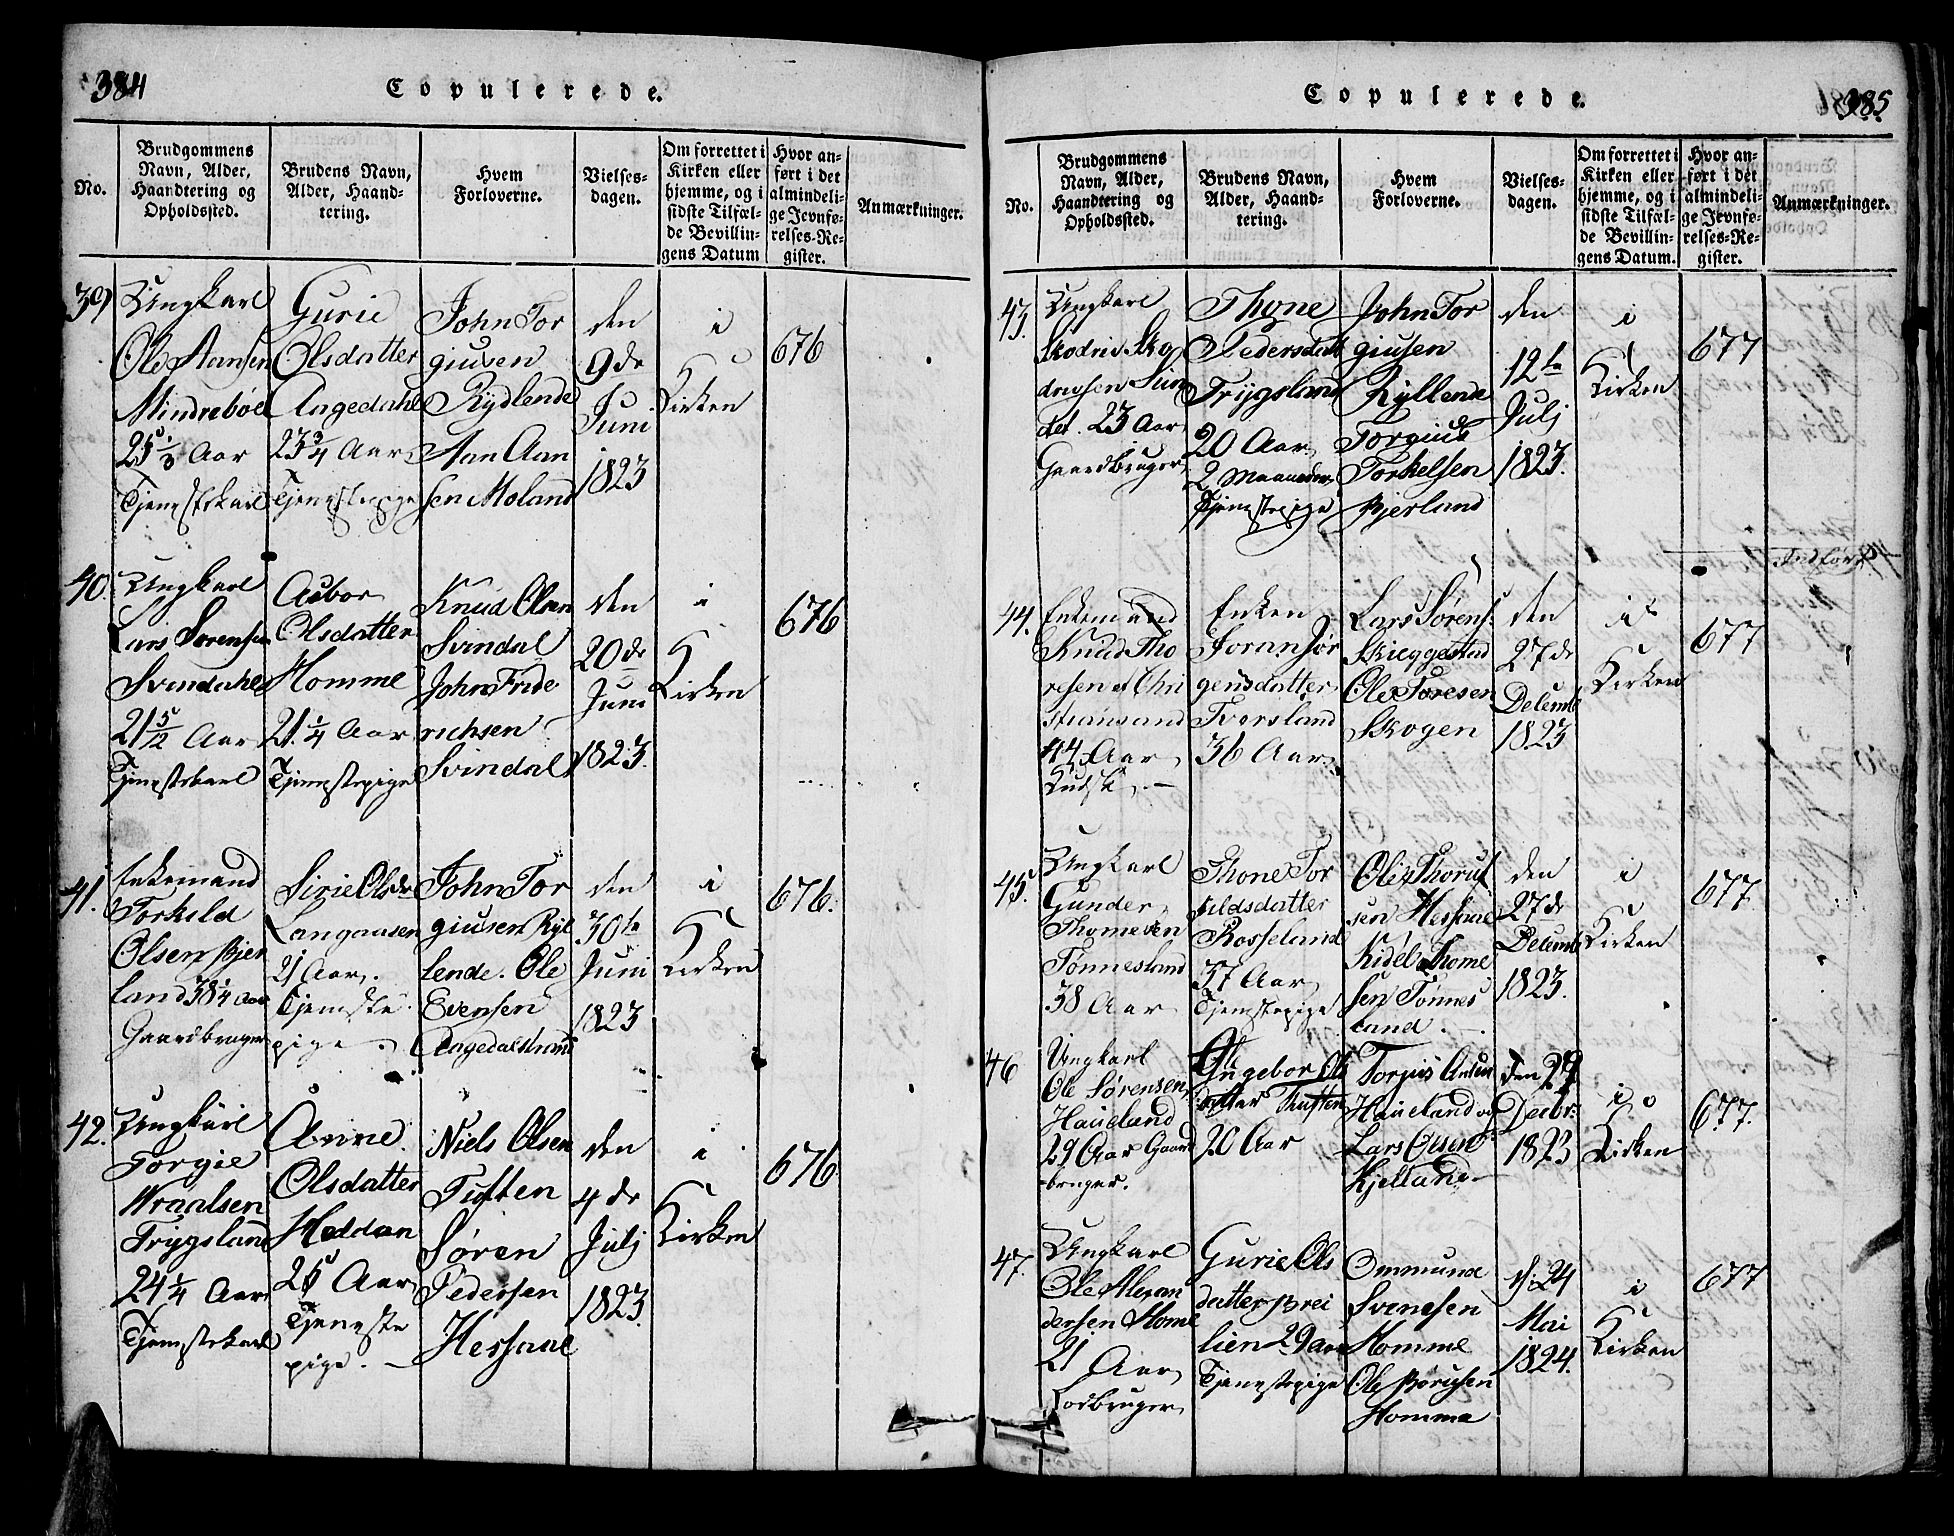 384
Copulerede.
No.
Brudgommens
Navn, Alder,
Haandtering og
Opholdssted.
Brudens Navn,
Alder, Haand-
tering.
Hvem
Forloverne.
Vielses-
dagen.
Om forrettet i
Kirken eller
hjemme, og i
sidste Tilfæl-
de Bevillin-
gens Datum
Hvor an-
ført i det
almindeli-
ge Jevnfø-
relses-Re-
gister.
Anmærkninger.
39
Ungkarl
Ole Aansen
Mindrebøe
25 1/3 Aar
Tjenestekarl
Gurie
Olsdatter
Aagedahl
23 3/4 Aar
Tjenestepige
John Tor
giusen
Rydlende
Aan Aan
sen Moland
den
9de
Juni
1823
i
Kirken
676
40
Ungkarl
Lars Sørensen
Svindahl
21 5/12 Aar
Tjenestekarl
Aabor
Olsdatter
Homme
21 1/4 Aar
Tjenestepige
Knud Olsen
Svindal
John Fride
richsen
Svindal
den
20de
Juni
1823.
i
Kirken
676
41.
Enkemand
Torkild
Olsen Bjer
land 38 1/4 Aar
Gaardbruger
Sirie Olsdr
Langaasen
21 Aar.
Tjeneste
pige.
John Tor
giusen Ryl
lende. Ole
Evensen
Aagedalstrand
den
30te
Juni
1823
i
Kirken
676.
42.
Ungkarl
Torgie
Wraalsen
Trygsland
24 1/4 Aar
Tjenestekarl
Anne
Olsdatter
Heddan
25 Aar
Tjeneste
pige.
Niels Olsen
Tuften
Søren
Pedersen
Hessaae
den
4de
Julj
1823.
i
Kirken
676
385
Copulerede.
No.
Brudgommens
Navn, Alder,
Haandtering og
Opholdssted.
Brudens Navn,
Alder, Haand-
tering.
Hvem
Forloverne.
Vielses-
dagen.
Om forrettet i
Kirken eller
hjemme, og i
sidste Tilfæl-
de Bevillin-
gens Datum.
Hvor an-
ført i det
almindeli-
ge Jevnfø-
relses-Re-
gister.
Anmærkninger.
43.
Ungkarl
23 Aar
Gaardbruger
Thone
Pedersdatt
Trygsland
20 Aar
2 Maaneder
Tjenestepige
John Tor
giusen
Ryllende
Torgius
Torkelsen
Bjerland
den
12te
Julj
1823.
i
Kirken
677
Indført
44.
Enkemand
Knud Tho
resen af Chri
stiansand
44 Aar
Kudsk
Enken
Joran Jør
gensdatter
Iversland
36 Aar
Lars Sørens.
Skieggestad
Ole Toresen
Skogen
den
27de
Decemb
1823
i
Kirken
677
45.
Ungkarl
Gunder
Thomesen
Tønnesland
38 Aar
Thone Tor
kildsdatter
Rosseland
37 Aar
Tjenestepige
Ole Thoruf
sen Hessaae
Kidel Thome
sen Tønnes
land.
den
27de
Decemb
1823.
i
Kirken
677
46
Ungkarl
Ole Sørensen
Haueland
29 Aar Gaard
bruger.
Ingebor Ols
datter Tuften
20 Aar
Torjus
Haueland og
Lars Olsen
Kjelland
den 29
Decbr:
1823
i
Kirken
677.
47.
Ungkarl
Ole Alexan
dersen Home
21 Aar
Lodbruger
Gurie Ols
datter Brei
lien 29 Aar
Tjenestepige
Ommund
Svenesen
Homme
Ole Børusen
Homme
d. 24
Mai
1824.
i
Kirken
677